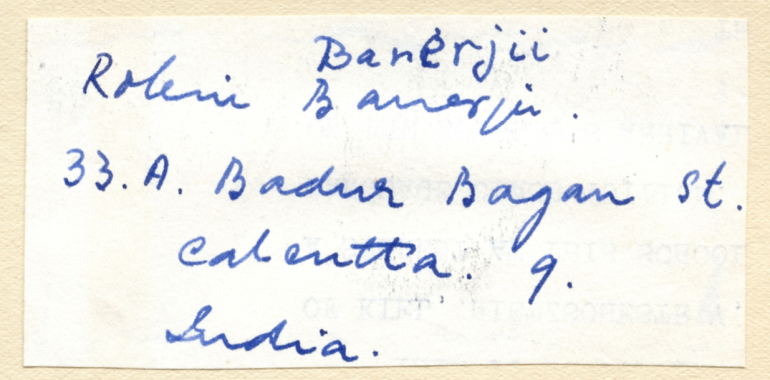 Banerjii
Robin Banerjii.
33. A. Badur Bagan St.
Calcutta. 9.
India.